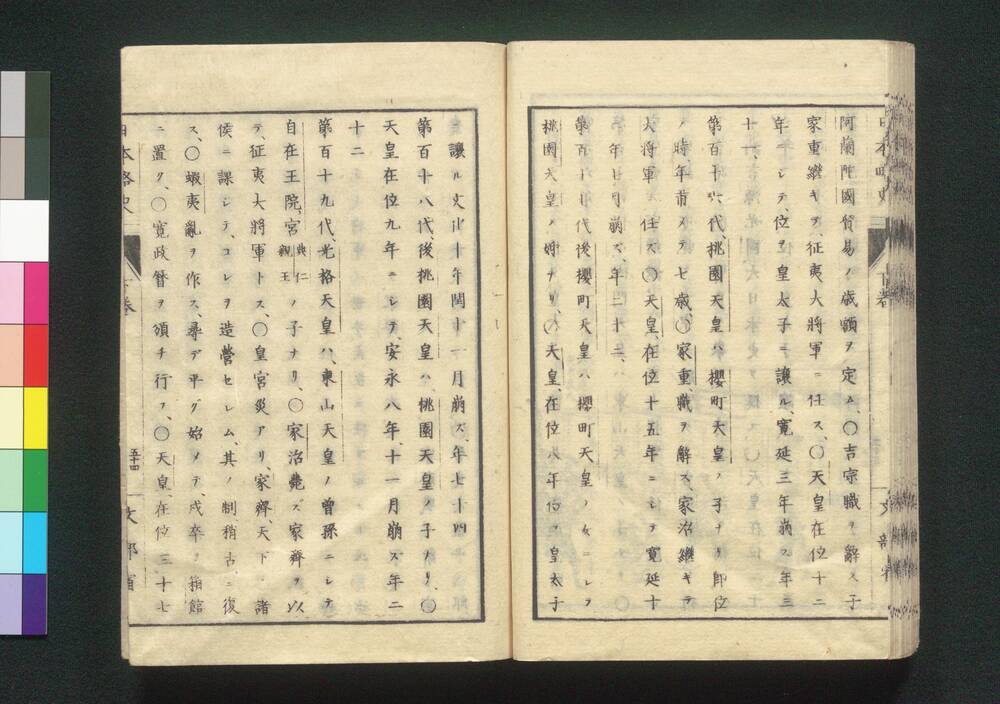 阿蘭陀國貿易ノ歳額ヲ定ム、〇吉宗職ヲ辭ス子
家重繼ギテ、征夷大將軍ニ任ス、〇天皇在位十二
年ニシテ、位ヲ皇太子ニ讓ル、寛延三年崩ス年三
十一、
第百十六代、桃園天皇ハ、櫻町天皇ノ子ナリ即位
ノ時、年甫メテ七歳、〇家重、職ヲ解ス、家治繼ギテ
大將軍ニ任ズ、〇天皇、在位十五年ニシテ寛延十
年七月崩ズ、年二十二、
第百十七代後櫻町天皇ハ櫻町天皇ノ女ニシテ
桃園天皇ノ姉ナリ、〇天皇、在位八年位ヲ皇太子
ニ讓ル文化十年閏十一月崩ズ、年七十四
第百十八代後桃園天皇ハ、桃園天皇ノ子ナリ、〇
天皇在位九年ニシテ、安永八年、十一月崩ズ年二
十二
第百十九代、光格天皇ハ、東山天皇ノ曾孫ニシテ
自在王院、宮典仁親王ノ子ナリ、〇家治薨ズ家齊ヲ以
テ、征夷大將軍トス、〇皇宮災アリ、家齊、天下ノ諸
侯ニ課シテ、コレヲ造營セシム、其ノ制稍古ニ復
ス、〇蝦夷亂ヲ作ス、尋デ平グ始メテ、戍卒ヲ箱館
ニ置ク、〇寛政曆ヲ頒チ行フ、〇天皇、在位三十七
日本略史
下卷
五十四
文部省